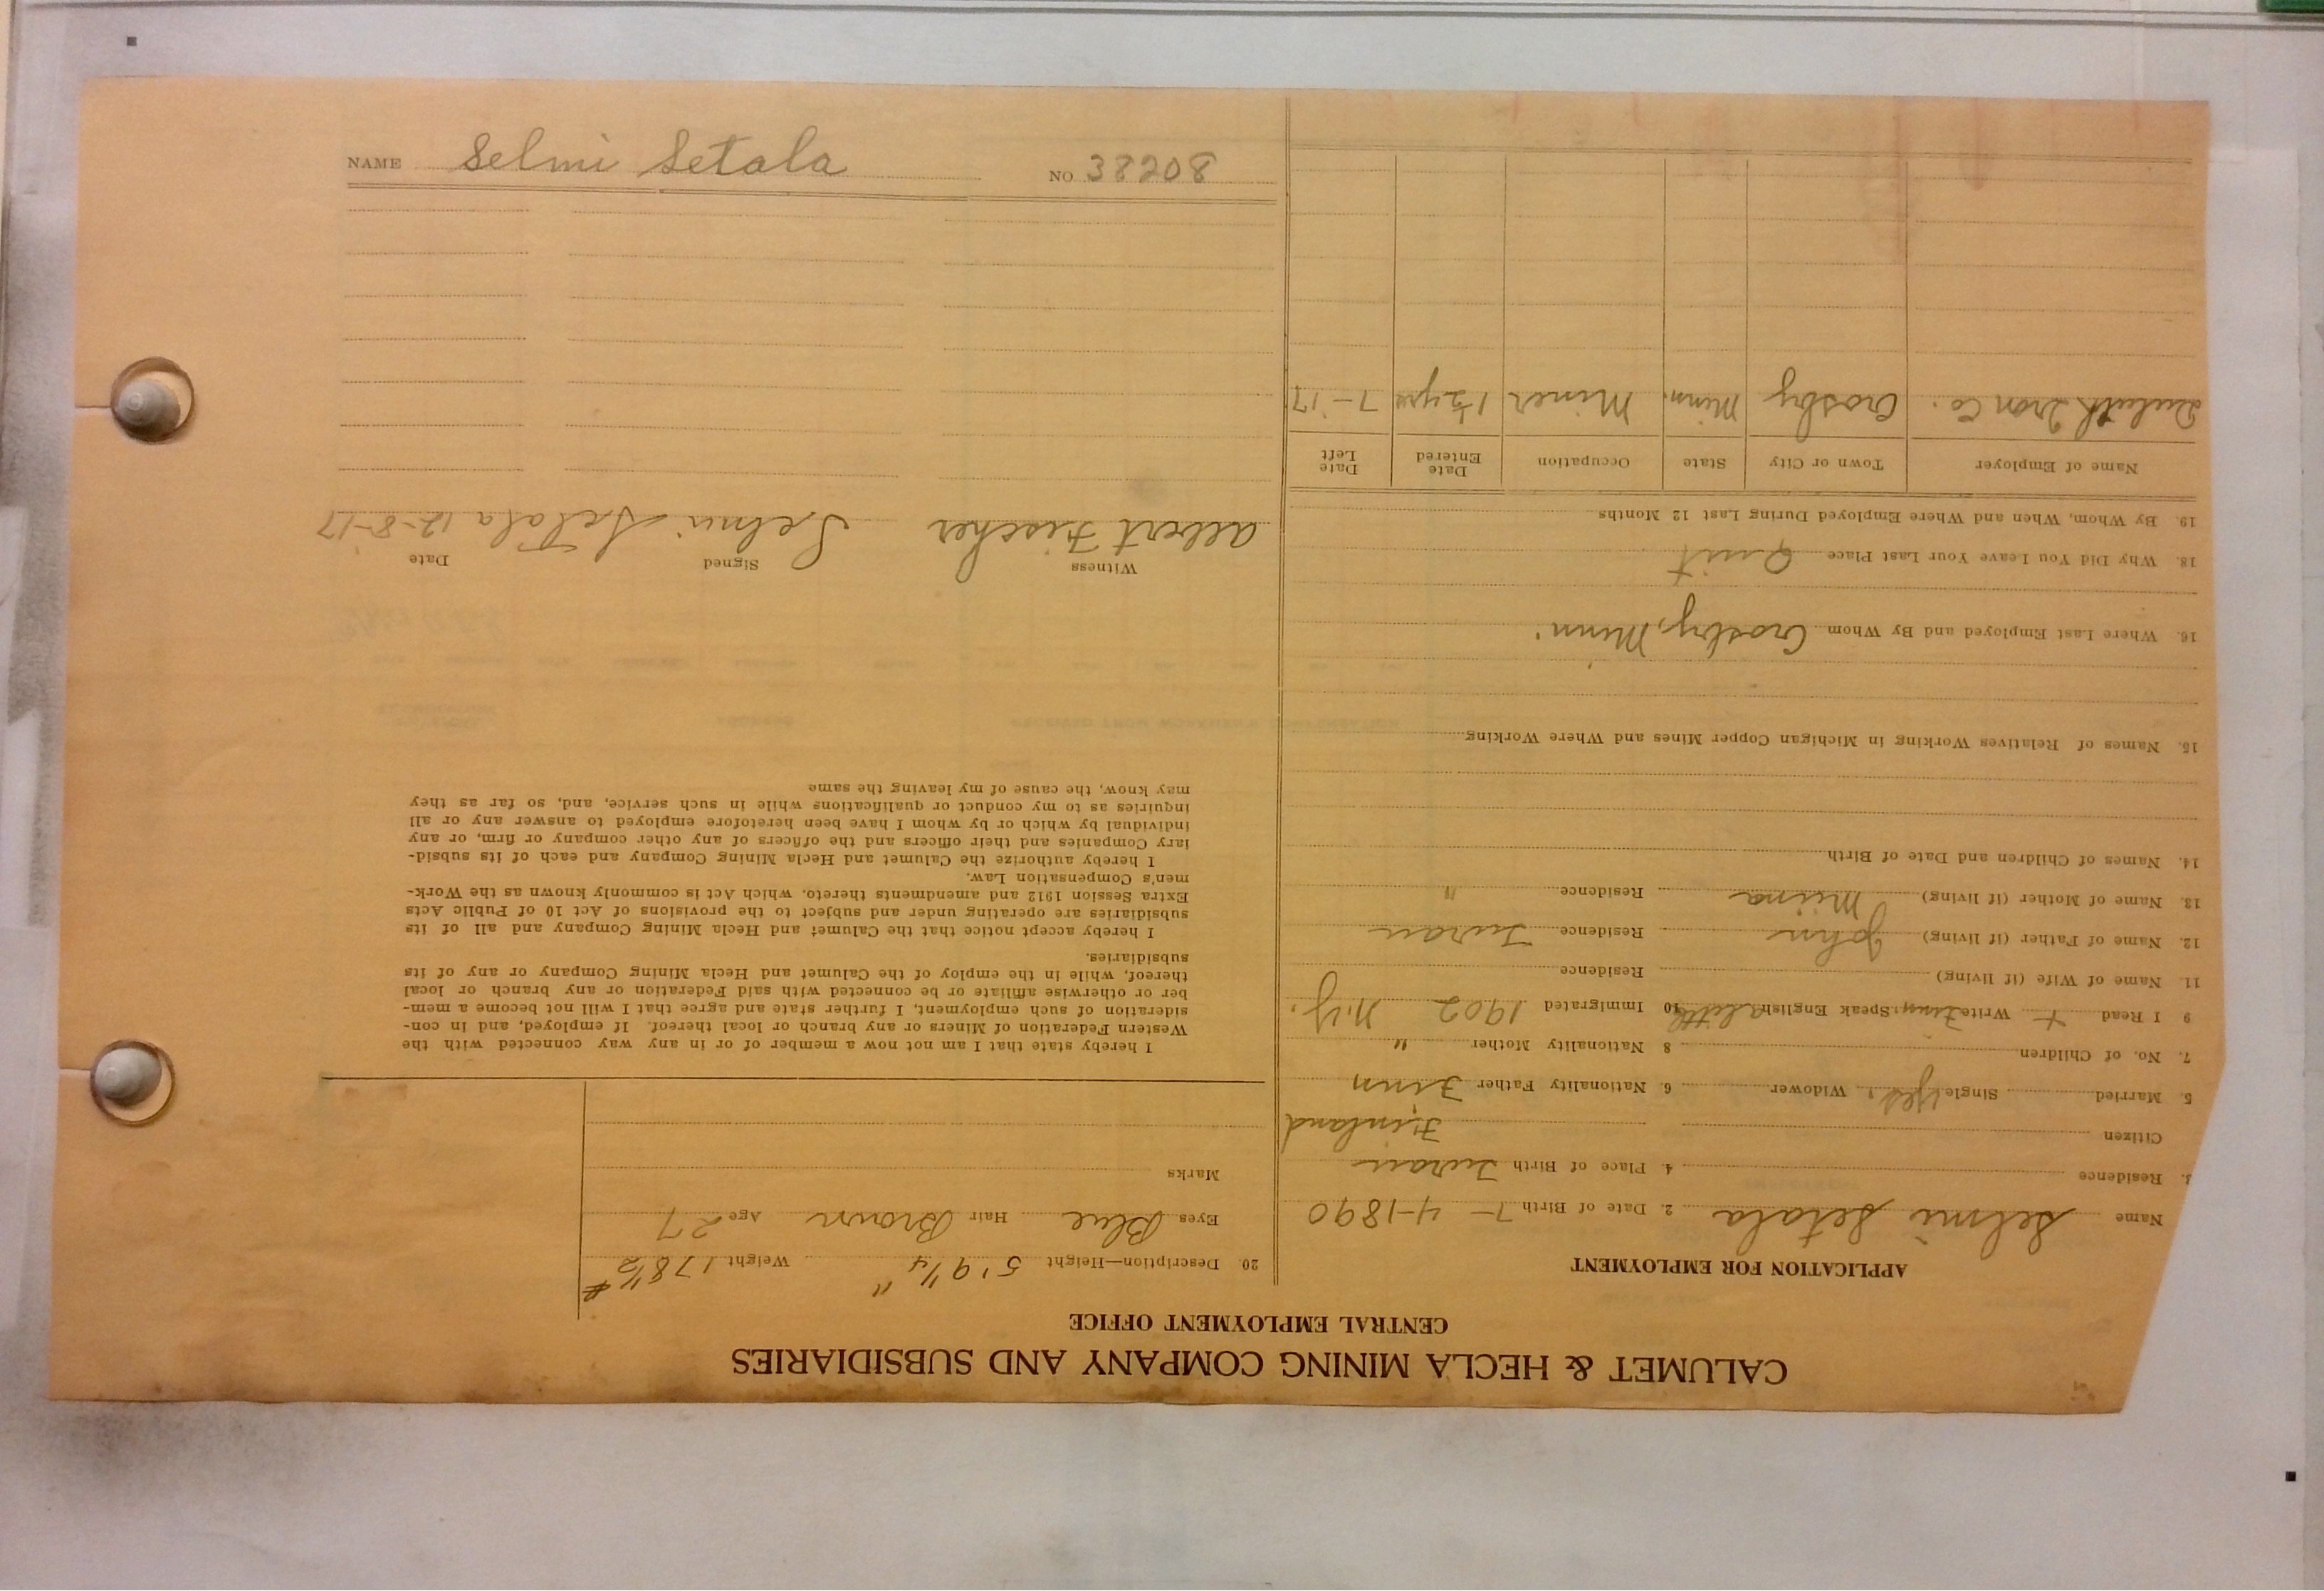 CALUMET & HECLA MINING COMPANY AND SUBSIDIARIES
CENTRAL EMPLOYMENT OFFICE
APPLICATION FOR EMPLOYMENT
Name Selmi Setala 2. Date of Birth 7-4-1890
3. Residence 4. Place of Birth
Citizen Finland
5. Married Single Yes. Widower 6. Nationality Father Finn
7. No. of Children 8 Nationality Mother "
9 I Read + Write Finn. Speak English a little 10 Immigrated 1902 N.Y.
11. Name of Wife (if living) Residence
12. Name of Father (if living) John Residence
13. Name of Mother (if living) Miina Residence "
14. Names of Children and Date of Birth
15. Names of Relatives Working in Michigan Copper Mines and Where Working
16. Where Last Employed and By Whom Crosby, Minn.
18. Why Did You Leave Your Last Place Quit
19. By Whom, When and Where Employed During Last 12 Months
Name of Employer Town or City State Occupation Date Entered Date Left
Duluth Iron Co. Crosby Minn. Miner 1½ yrs 7-17
20. Description—Height 5' 9¼" Weight 178½ #
Eyes Blue Hair Brown Age 27
Marks
I hereby state that I am not now a member of or in any way connected with the
Western Federation of Miners or any branch or local thereof. If employed, and in con-
sideration of such employment, I further state and agree that I will not become a mem-
ber or otherwise affiliate or be connected with said Federation or any branch or local
thereof, while in the employ of the Calumet and Hecla Mining Company or any of its
subsidiaries.
I hereby accept notice that the Calumet and Hecla Mining Company and all of its
subsidiaries are operating under and subject to the provisions of Act 10 of Public Acts
Extra Session 1912 and amendments thereto, which Act is commonly known as the Work-
men's Compensation Law.
I hereby authorize the Calumet and Hecla Mining Company and each of its subsid-
iary Companies and their officers and the officers of any other company or firm, or any
individual by which or by whom I have been heretofore employed to answer any or all
inquiries as to my conduct or qualifications while in such service, and, so far as they
may know, the cause of my leaving the same
Witness Signed Date
Albert Fischer Selmi Setala 12-8-17
NAME Selmi Setala NO 38208